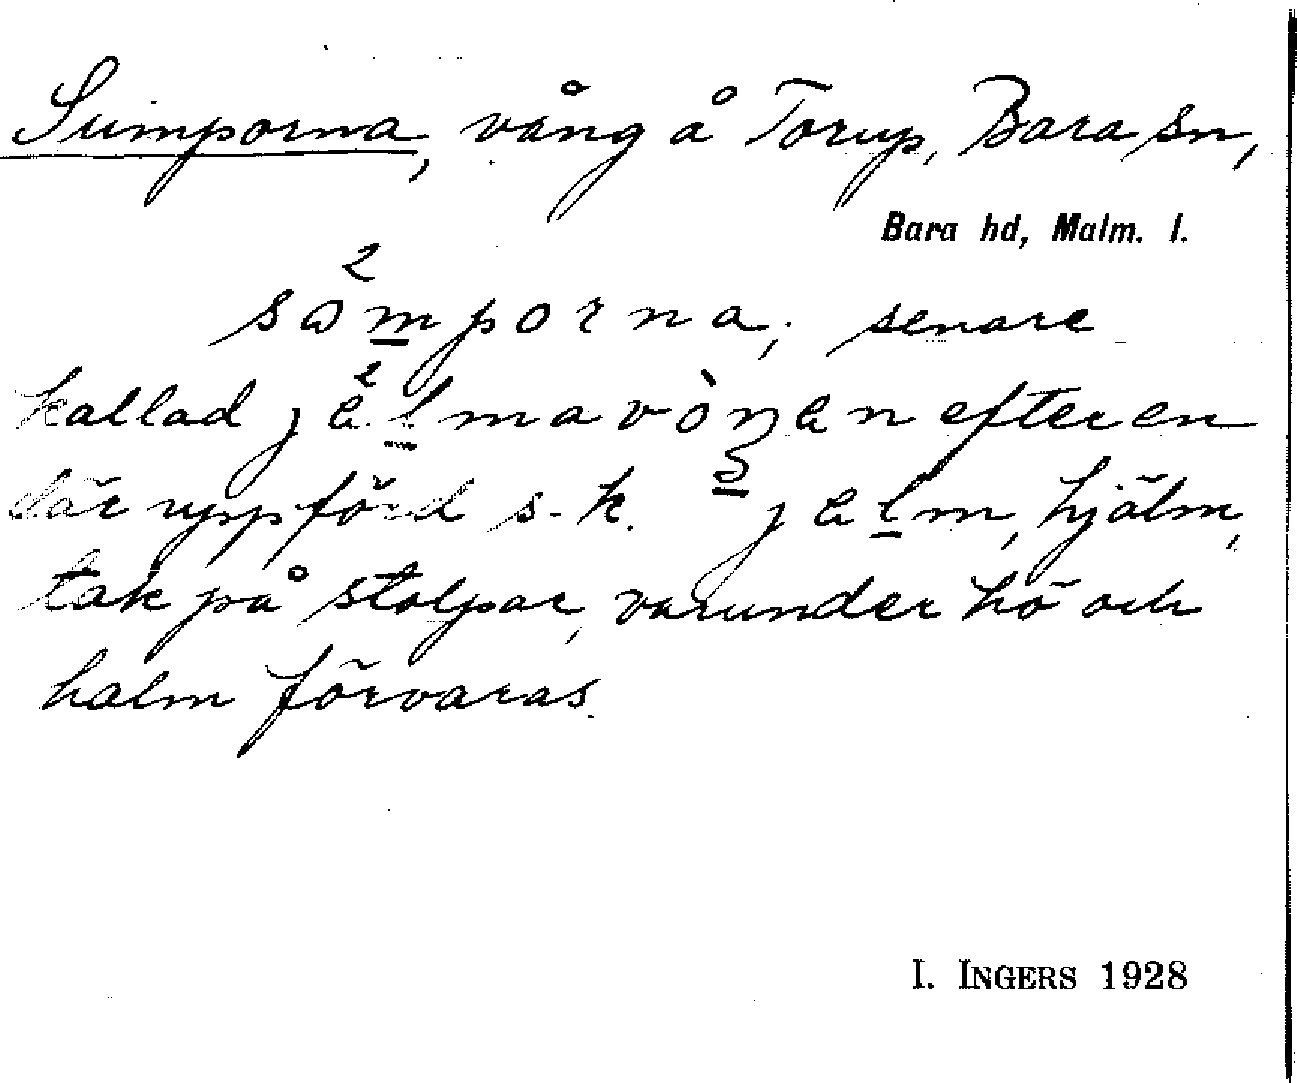 Sumporna, vång å Torup, Bara sn,
Bara hd, Malm. l.
sɷ²mporna; senare
kallad jä²lmavòŋen efter en
där uppförd s. k. jelm, hjälm,
tak på stolpar, varunder hö och
halm förvaras.
I. INGERS 1928